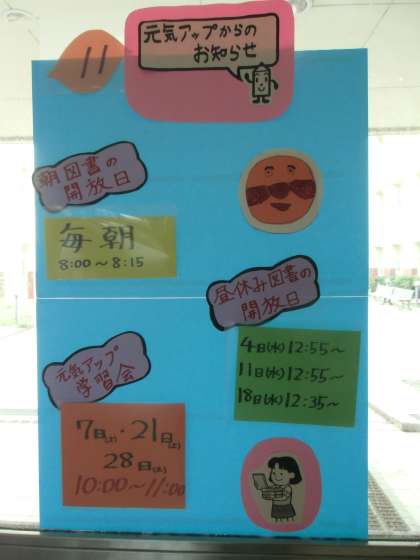 11
元気アップからの
お知らせ
朝図書の
開放日
毎朝
8:00～8:15
昼休み図書の
開放日
4日(水)12:55～
11日(水)12:55～
18日(水)12:35～
元気アップ
学習会
7日(土)・21日(土)
28日(土)
10:00～11:00